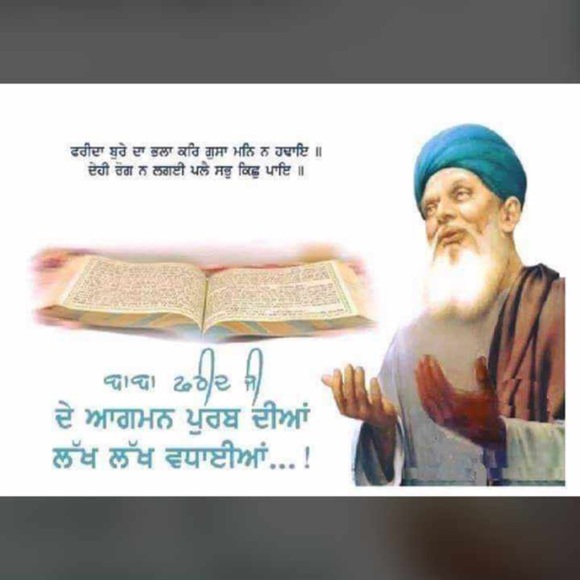 ਫਰੀਦਾ ਬੁਰੇ ਦਾ ਭਲਾ ਕਰਿ ਗੁਸਾ ਮਨਿ ਨ ਹਢਾਇ ॥
ਦੇਹੀ ਰੋਗ ਨ ਲਗਈ ਪਲੈ ਸਭੁ ਕਿਛੁ ਪਾਇ ॥
ਬਾਬਾ ਫਰੀਦ ਜੀ
ਦੇ ਆਗਮਨ ਪੁਰਬ ਦੀਆਂ
ਲੱਖ ਲੱਖ ਵਧਾਈਆਂ...!